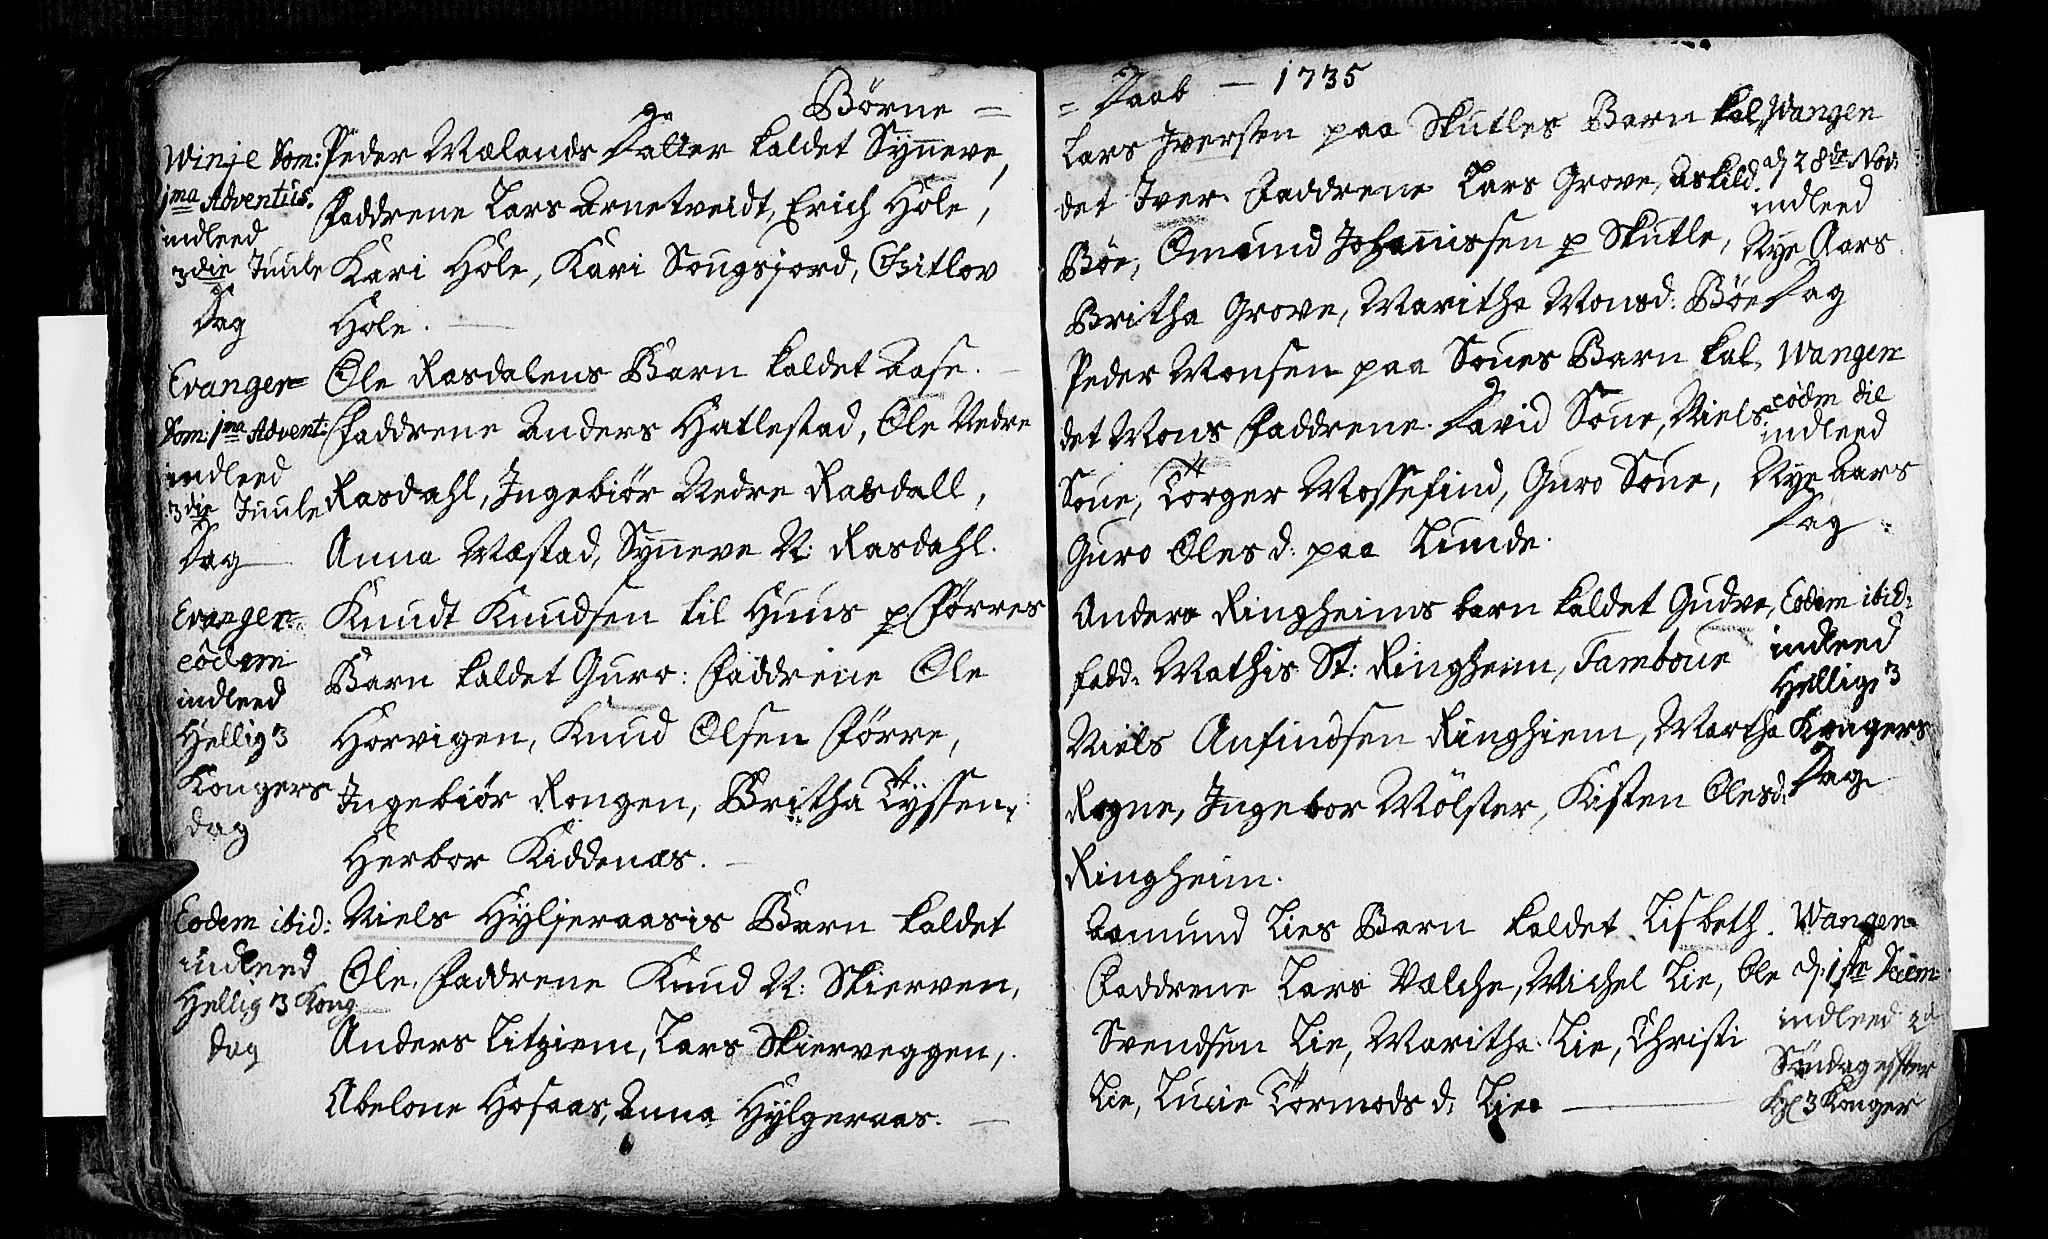 Børne =
Winje Dom:
1ma Adventus.
indleed
3die Juule
Dag
Peder Mælands Datter kaldet Synneve,
Faddrene Lars Arnetveidt, Erich Høle,
Kari Høle, Kari Sougsjord, Gitlov
Høle.
Evanger
Dom: 1ma Advent:
indleed
3die Juule
Dag
Ole Rasdalens Barn kaldet Aase.
Faddrene Anders Hatlestad, Ole Nedre
Rasdahl, Ingebiør Nedre Rasdall,
Anna Mæstad, Synneve N: Rasdahl.
Evanger
eodem
indleed
Hellig 3
Kongers
dag
Knudt Knudsen til Huus p Førres
Barn kaldet Guro: Faddrene Ole
Horvigen, Knud Olsen Førre,
Ingebiør Rongen, Britha Tyssen,
Herbor Kiddenæs.
Eodem ibid:
indleed
Hellig 3 Kong
dag
Niels Hyljeraasis Barn kaldet
Ole. Faddrene Knud N: Skierven,
Anders Litziem, Lars Skierveggen,
Abelone Hofaas, Anna Hylgeraas.
= Daab — 1735
Lars Iversen paa Skutles Barn kal
det Iver. Faddrene Lars Grove, Askild
Bøe, Omund Johannissen p Skutle,
Britha Grove, Maritha Monsd: Bøe
Wangen
d 28de Nov:
indleed
Nye Aars
Dag
Peder Monsen paa Soues Barn kal
det Mons Faddrene. David Soue, Niels
Soue, Törger Mossefind, Guro Soue,
Guro Olesd: paa Lunde.
Wangen
eodm die
indleed
Nye Aars
Dag
Anders Ringheims barn kaldet Gudve,
fadd: Mathis St: Ringheim, Tambour
Niels Anfindsen Ringhiem, Martha
Rogne, Ingebor Mølster, Kisten Olesd:
Ringheim.
Eodem ibid:
indleed
Hellig 3
Kongers
Dag
Aamund Lies Barn kaldet Lisbeth.
Faddrene Lars Valche, Michel Lie, Ole
Svendsen Lie, Maritha Lie, Christi
Lie, Lucie Tormods d: Lie
Wangen
d: 1ste Decem:
indleed 2d
Søndag efter
H 3 Konger